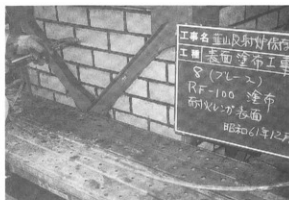 工事名 韮山反射炉保存
工種 表面塗布工事
8 (ブレース)
RF-100 塗布
耐火レンガ表面
昭和61年12月